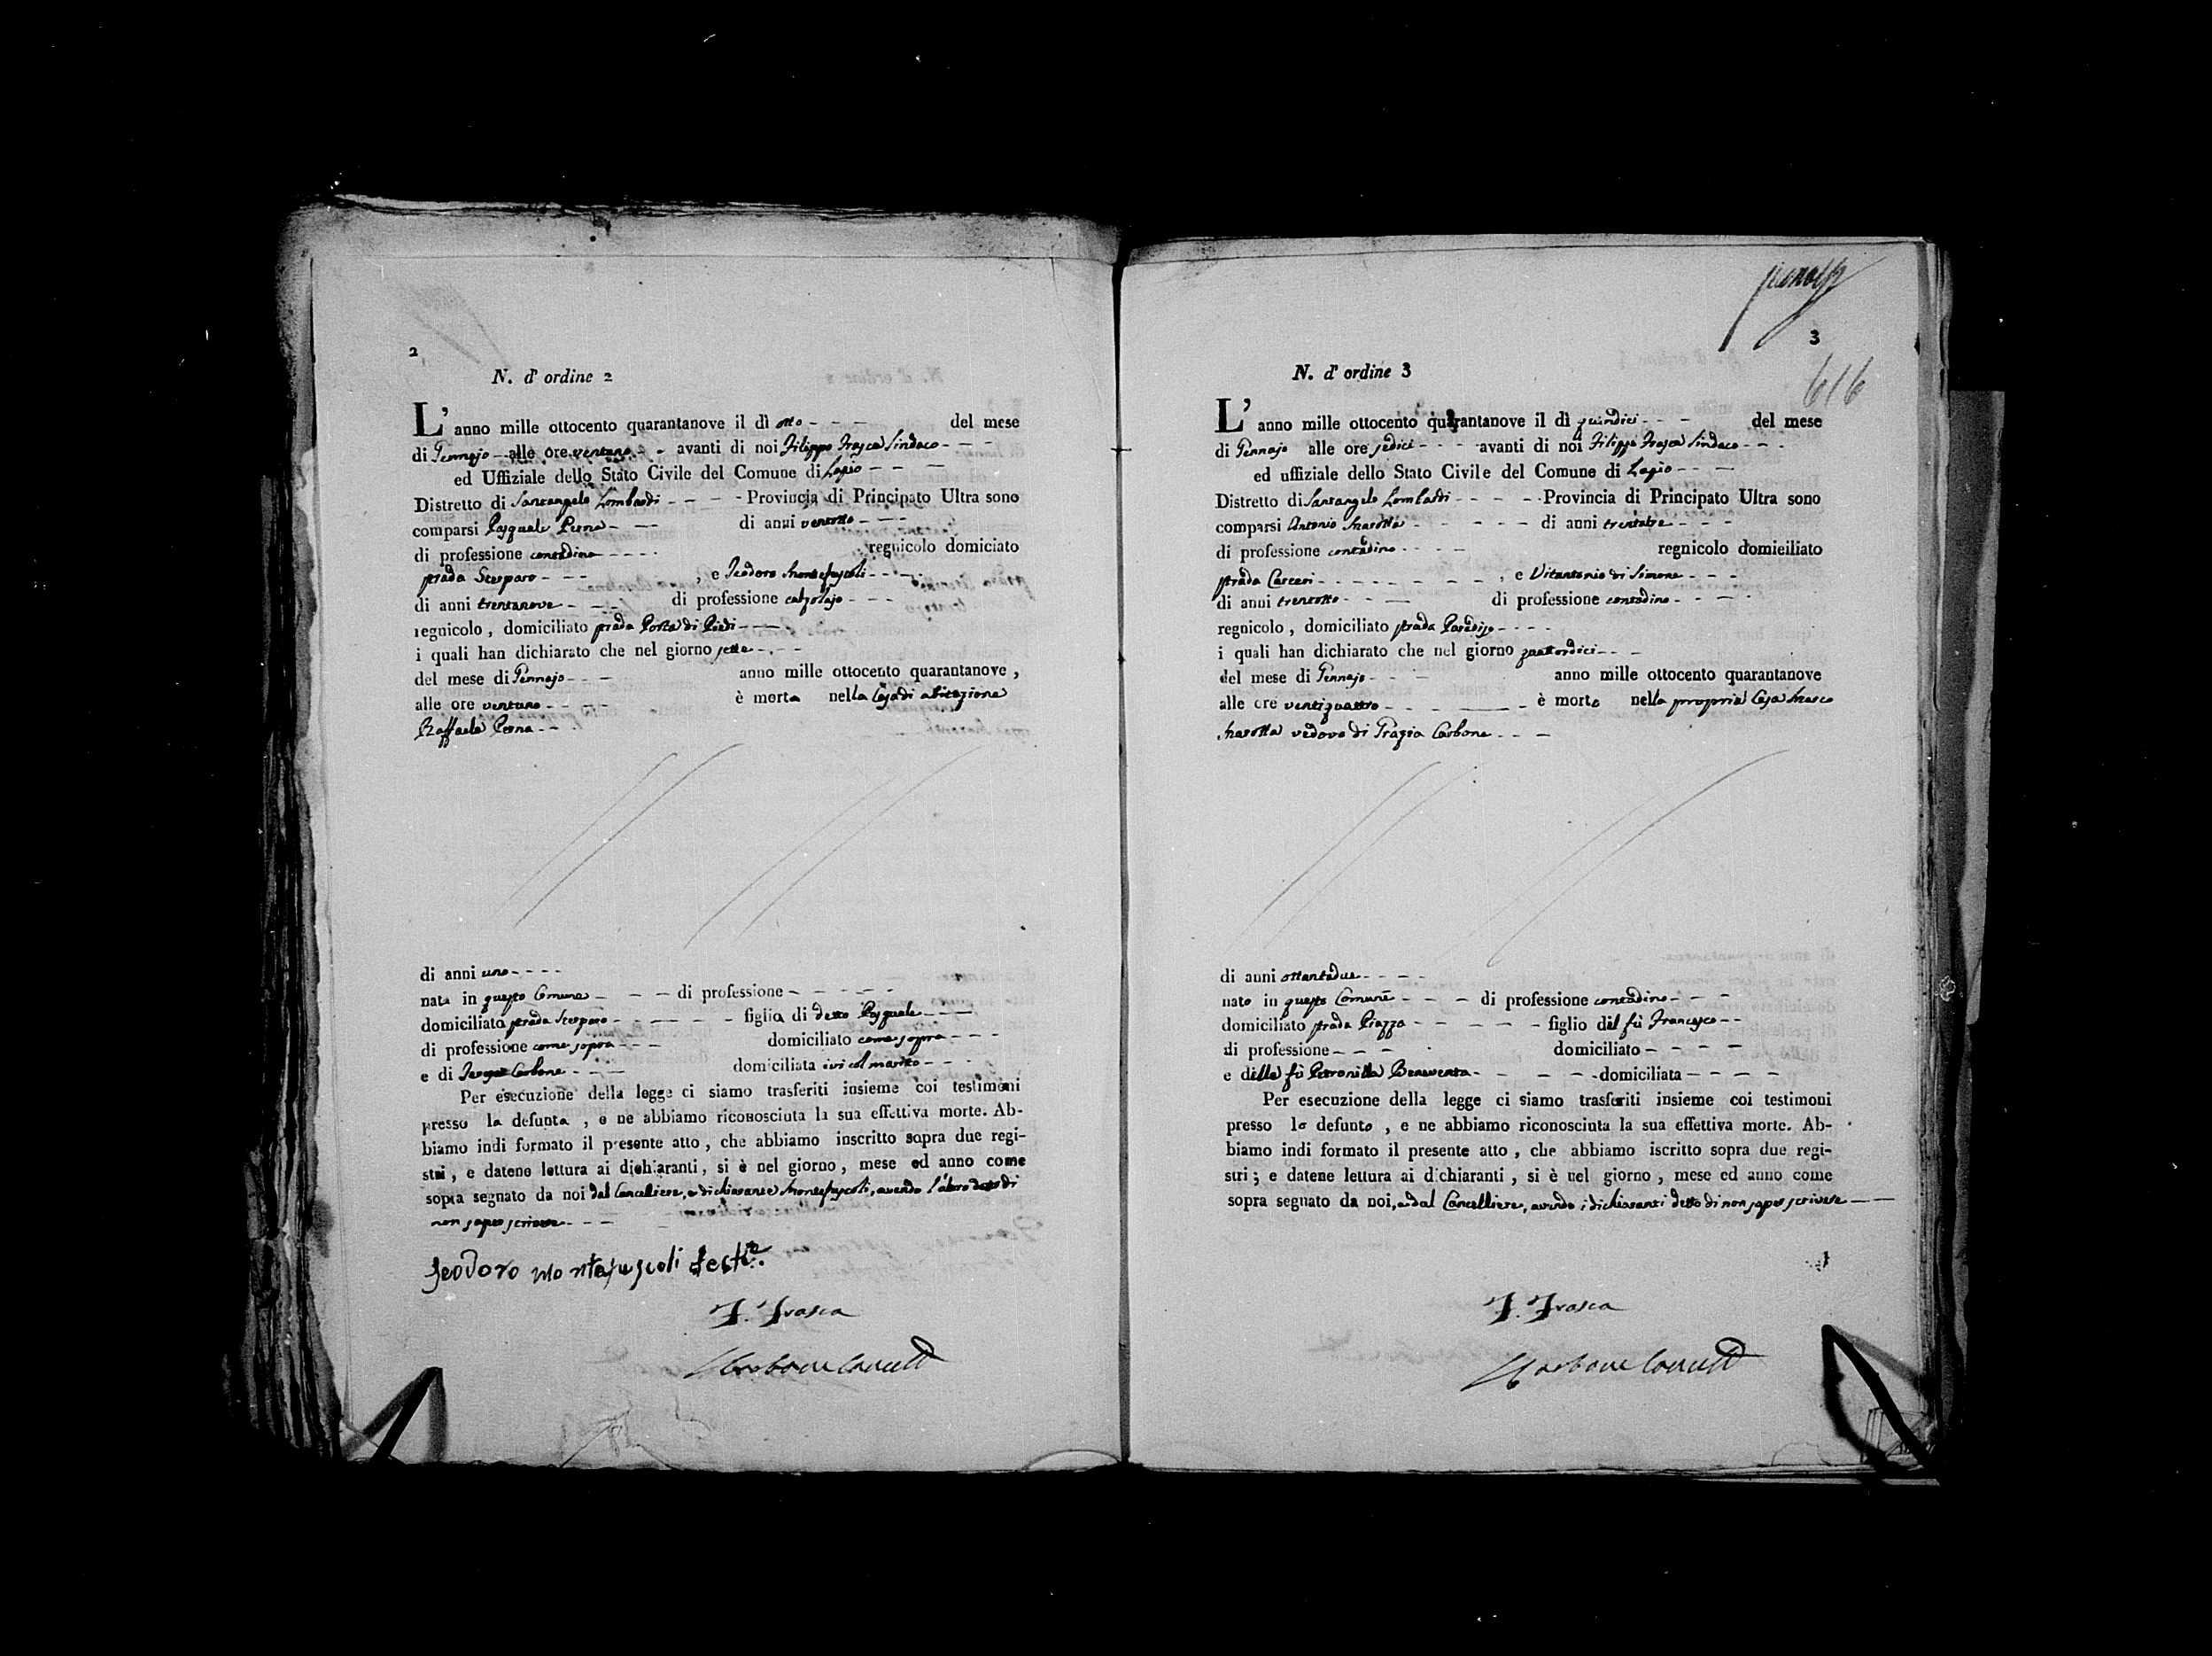 2
N. d' ordine 2
L' anno mille ottocento quarantanove il dì otto del mese
di Gennajo alle ore ventuno avanti di noi Filippo Frasca Sindaco
ed Uffiziale dello Stato Civile del Comune di Lapio
Distretto di Santangelo Lombardi Provincia di Principato Ultra sono
comparsi Pasquale Perna di anni ventotto
di professione contadino regnicolo domiciato
strada , e Teodoro Montefuscoli
di anni trentanove di professione calzolajo
regnicolo , domiciliato strada Porta di Piedi
i quali han dichiarato che nel giorno sette
del mese di Gennajo anno mille ottocento quarantanove ,
alle ore ventuno è morta nella Casa di abitazione
Raffaela Perna
di anni uno
nata in questo Comune di professione
domiciliata strada figlia di detto Pasquale
di professione come sopra domiciliato come sopra
e di Carbone domiciliata ivi col marito
Per esecuzione della legge ci siamo trasferiti insieme coi testimoni
presso la defunta , e ne abbiamo riconosciuta la sua effettiva morte. Ab-
biamo indi formato il presente atto , che abbiamo inscritto sopra due regi-
stri , e datene lettura ai dichiaranti , si è nel giorno , mese ed anno come
sopra segnato da noi dal Cancelliere, e dichiarante Montefuscoli, avendo l'altro detto di
non saper scrivere
Teodoro Montefuscoli
F. Frasca
Carbone Cancell
3
616
N. d' ordine 3
L' anno mille ottocento quarantanove il dì quindici del mese
di Gennajo alle ore sedici avanti di noi Filippo Frasca Sindaco
ed uffiziale dello Stato Civile del Comune di Lapio
Distretto di Santangelo Lombardi Provincia di Principato Ultra sono
comparsi Antonio Marotta di anni trentatre
di professione contadino regnicolo domieiliato
strada Carceri , e Vitantonio di Simone
di anni trentotto di professione contadino
regnicolo , domiciliato strada Paradiso
i quali han dichiarato che nel giorno quattordici
del mese di Gennajo anno mille ottocento quarantanove
alle ore ventiquattro è morto nella propria Casa Marco
Marotta vedovo di Grazia Carbone
di anni ottantadue
nato in questo Comune di professione contadino
domiciliato strada Piazza figlio del fù Francesco
di professione domiciliato
e della fù Petronilla Beneventa domiciliata
Per esecuzione della legge ci siamo trasferiti insieme coi testimoni
presso lo defunto , e ne abbiamo riconosciuta la sua effettiva morte. Ab-
biamo indi formato il presente atto , che abbiamo iscritto sopra due regi-
stri ; e datene lettura ai dichiaranti , si è nel giorno , mese ed anno come
sopra segnato da noi, e dal Cancelliere, avendo i dichiaranti detto di non saper scrivere
F. Frasca
Carbone Cancell